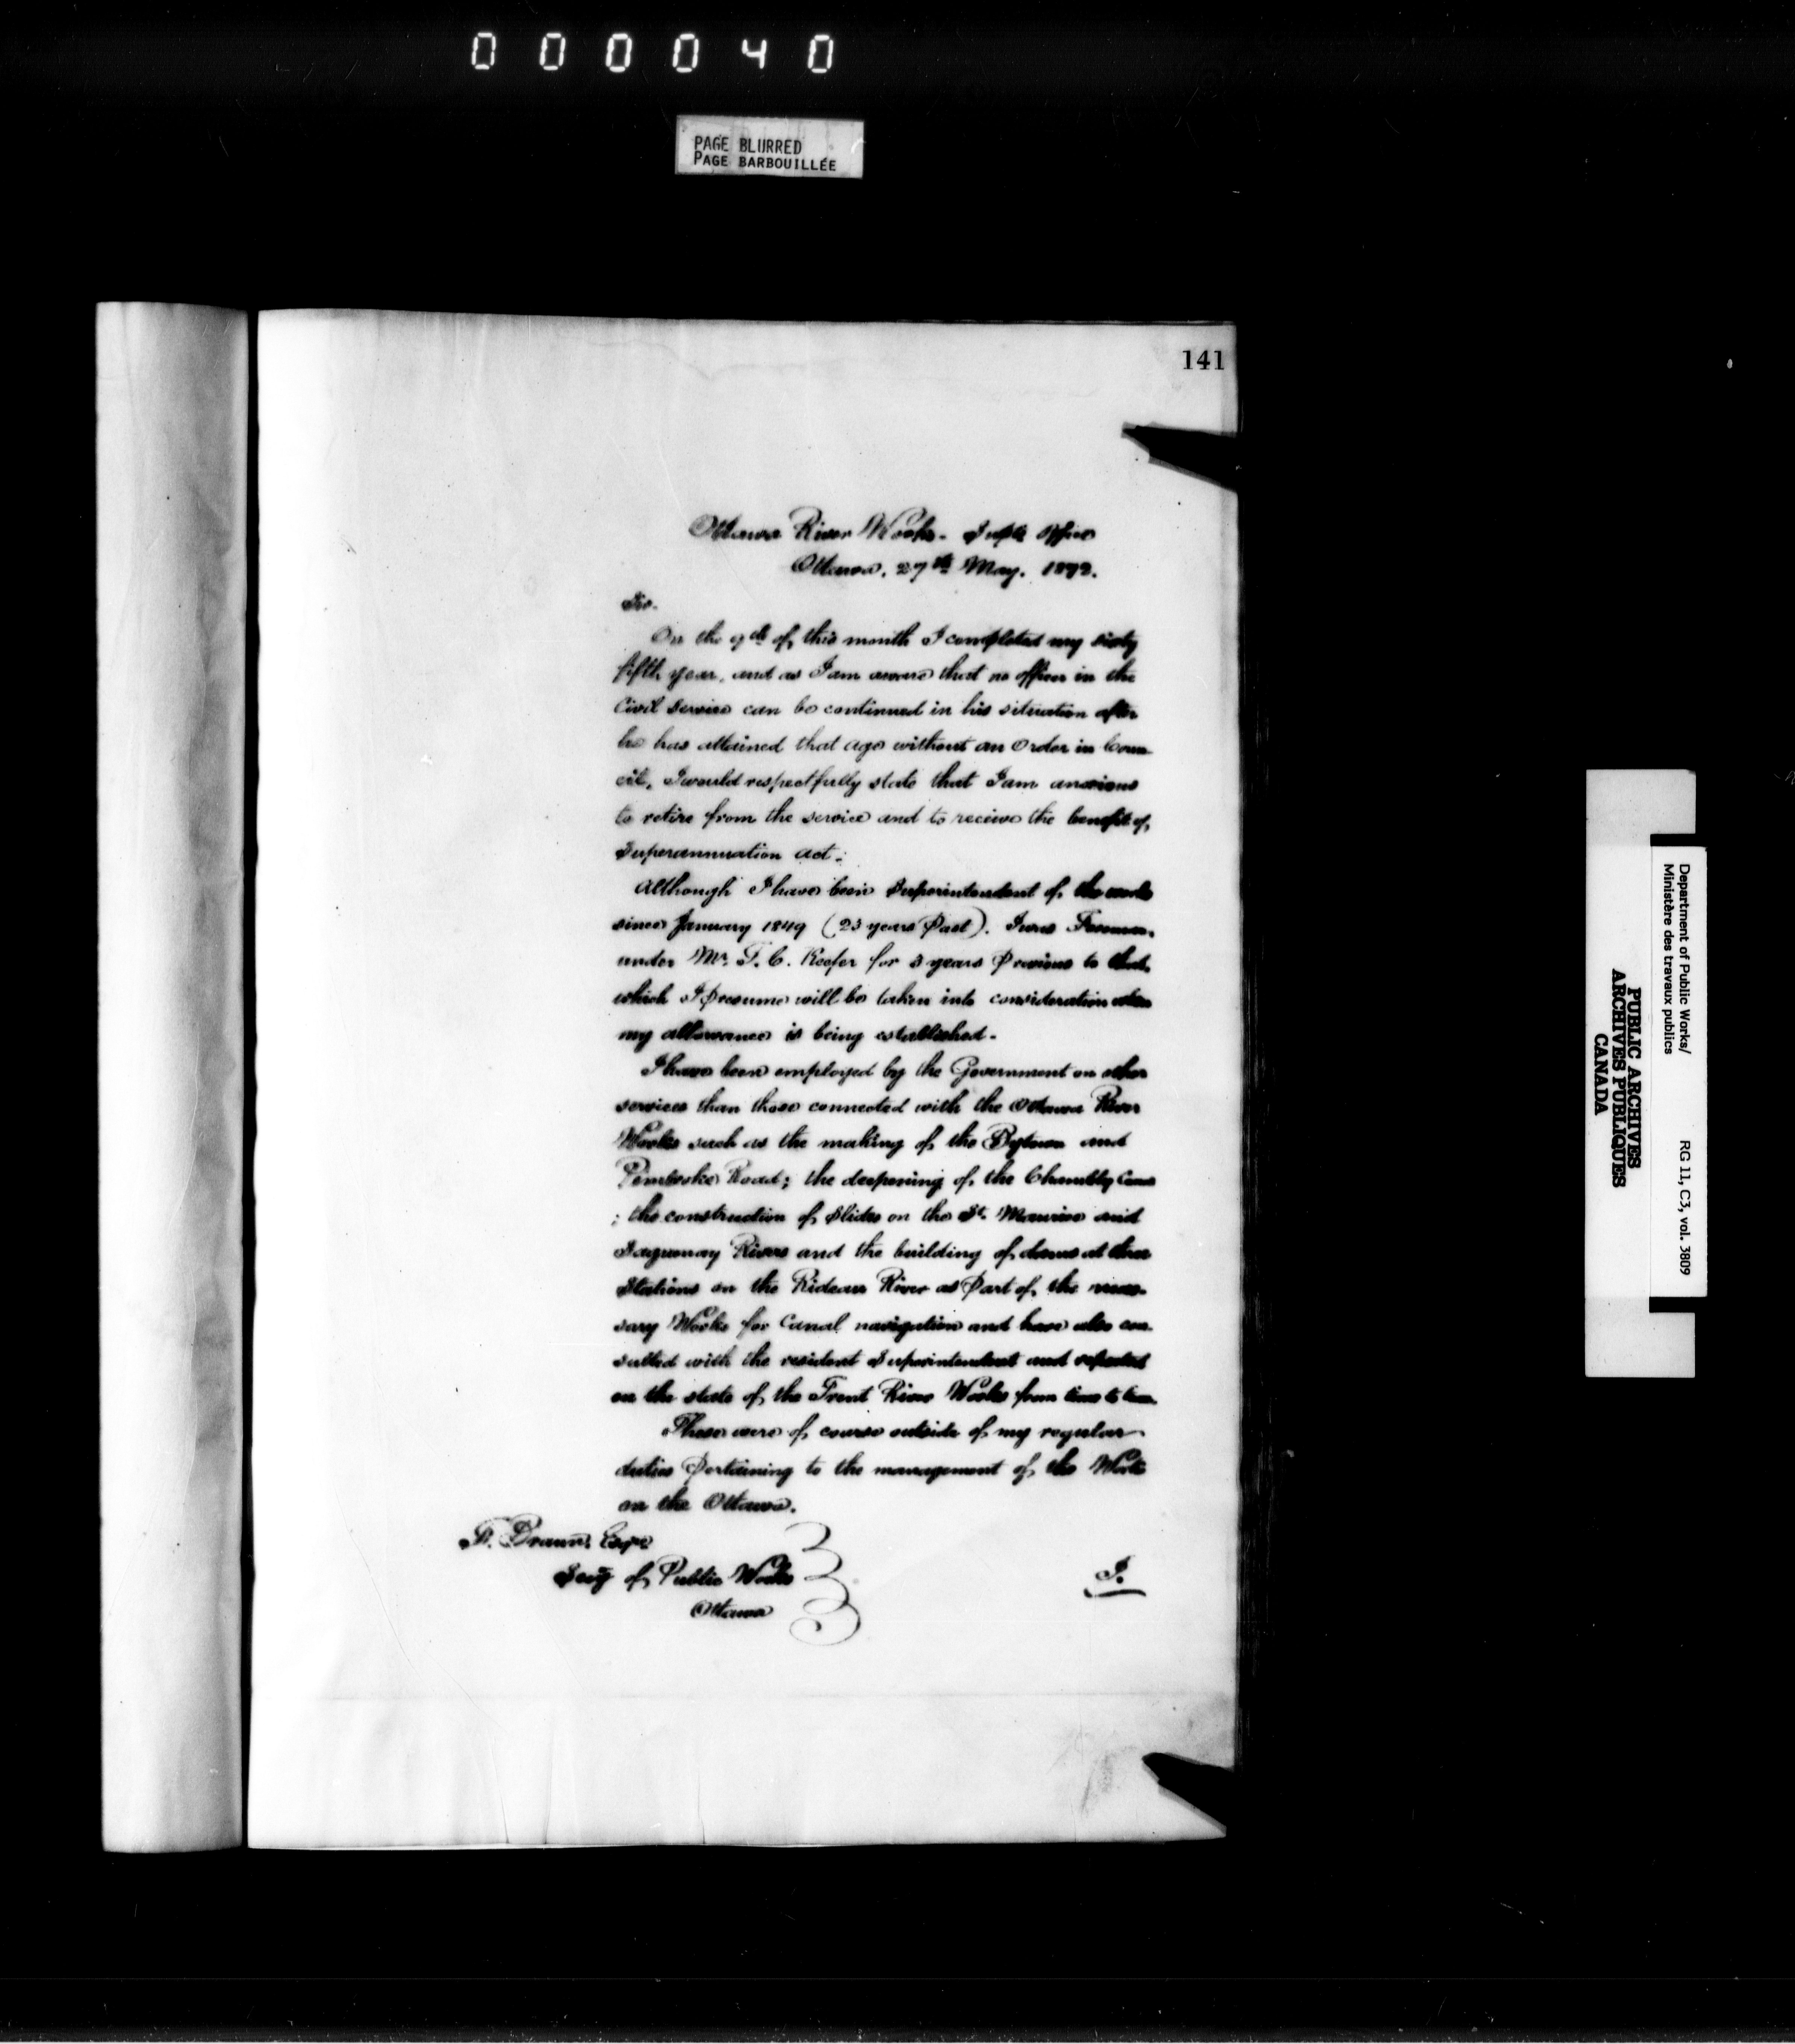 000040
PAGE BLURRED
PAGE BARBOUILLÉE
141
Ottawa River Works. Supts Office
Ottawa, 27th May. 1872.
Sir.
On the 9th of this month I completed my sixty
fifth year, and as I am aware that no officer in the
Civil Service can be continued in his situation after
he has attained that age without an Order in Coun-
cil, I would respectfully state that I am anxious
to retire from the service and to receive the benefit of
Superannuation Act.
Although I have been Superintendent of the works
since January 1849 (23 years Past). I was Foreman
under Mr. T. C. Keefer for 3 years Previous to that,
which I Presume will be taken into consideration when
my allowance is being established.
I have been employed by the Government on other
services than those connected with the Ottawa River
Works such as the making of the Bytown and
Pembroke Road; the deepening of the Chambly Canal
; the construction of Slides on the St. Maurice and
Saguenay Rivers and the building of dams at three
Stations on the Rideau River as Part of the neces-
sary Works for Canal navigation and have also con-
sulted with the resident Superintendent and reported
on the state of the Trent River Works from time to time.
These were of course outside of my regular
duties Pertaining to the management of the Works
on the Ottawa.
F. Braun, Esqre
Secy of Public Works
Ottawa
I.
Department of Public Works/
Ministère des travaux publics
RG 11, C3, vol. 3809
PUBLIC ARCHIVES
ARCHIVES PUBLIQUES
CANADA